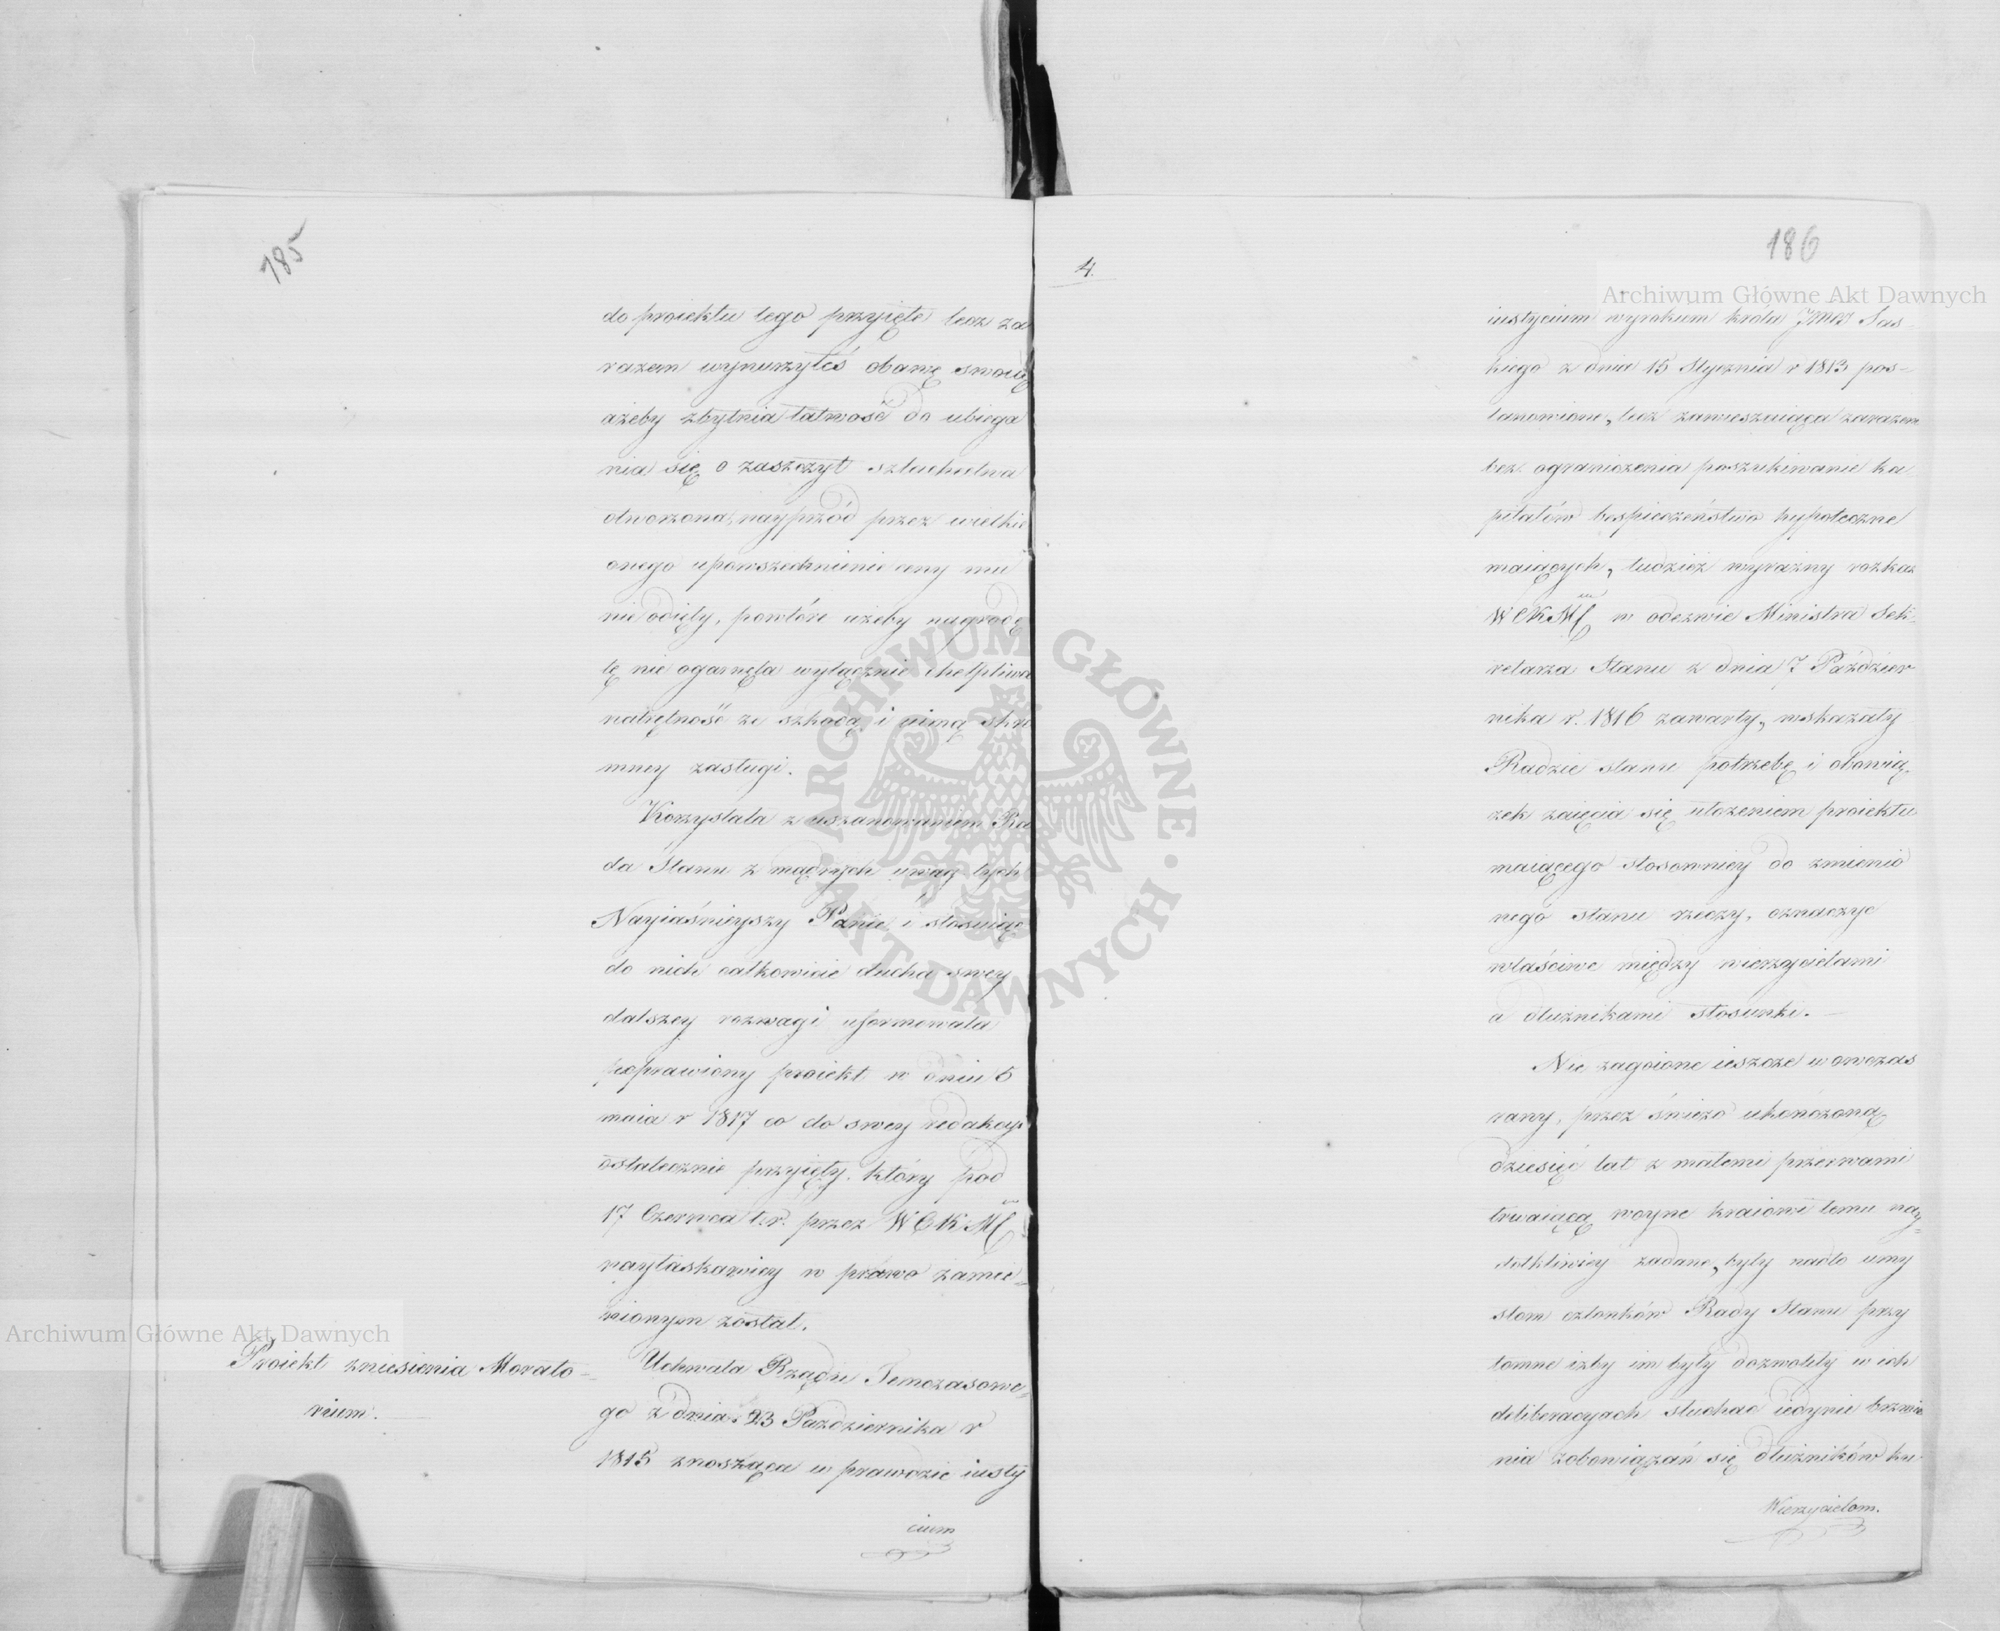 185
do proiektu tego przyięte lecz za
razem wynurzyłeś obawę swoią
ażeby zbytnia łatwość do ubiega
nia się o zaszczyt szlachectwa
otworzona, nayprzód przez wielkie
onego upowszechnienie ceny mu
nie odięły, powtóre ażeby nagrodę
tę nie ogarnęła wyłącznie chełpliwa
natrętność ze szkodą i uimą skro
mney zasługi.
Korzystała z uszanowaniem Ra
da Stanu z mądrych uwag tych
Nayiaśnieyszy Panie, i stosuiąc
do nich całkowicie ducha swey
dalszey rozwagi uformowała
poprawiony proiekt w dniu 5
maia r 1817 co do swey redakcyi
ostatecznie przyięty, który pod
17 Czerwca t. r. przez W C K Mć
nayłaskawiey w prawo zamie-
nionym został.
Proiekt zniesienia Morato-
rium.
Uchwała Rządu Temczasowe-
go z dnia 23 Pazdziernika r
1815 znosząca w prawdzie iusty
cium
186
4.
iustycium wyrokiem króla Jmci Sas
kiego z dnia 15 Stycznia r 1813 pos-
tanowione, lecz zawieszaiąca zarazem
bez ograniczenia poszukiwanie ka-
pitałów bespieczeństwo hypoteczne
maiących, tudzież wyraźny rozkaz
W C K Mci w odezwie Ministra Sek-
retarza Stanu z dnia 7 Paździer
nika r. 1816 zawarty, wskazały
Radzie stanu potrzebę i obowią-
zek zaięcia się ułożeniem proiektu
maiącego stosowniey do zmienio
nego stanu rzeczy, oznaczyć
właściwe między wierzycielami
a dłużnikami stosunki.
Nie zagoione ieszcze w owczas
rany, przez świeżo ukończoną
dziesięć lat z małemi przerwami
trwaiącą woynę kraiowi temu nay-
dotkliwiey zadane, były nadto umy
słom członków Rady Stanu przy
tomne iżby im były dozwoliły w ich
deliberacyach słuchać iedynie brzmie
nia zobowiązań się dłużników ku
Wierzycielom.
Archiwum Główne Akt Dawnych
Archiwum Główne Akt Dawnych
ARCHIWUM GŁÓWNE · AKT DAWNYCH ·